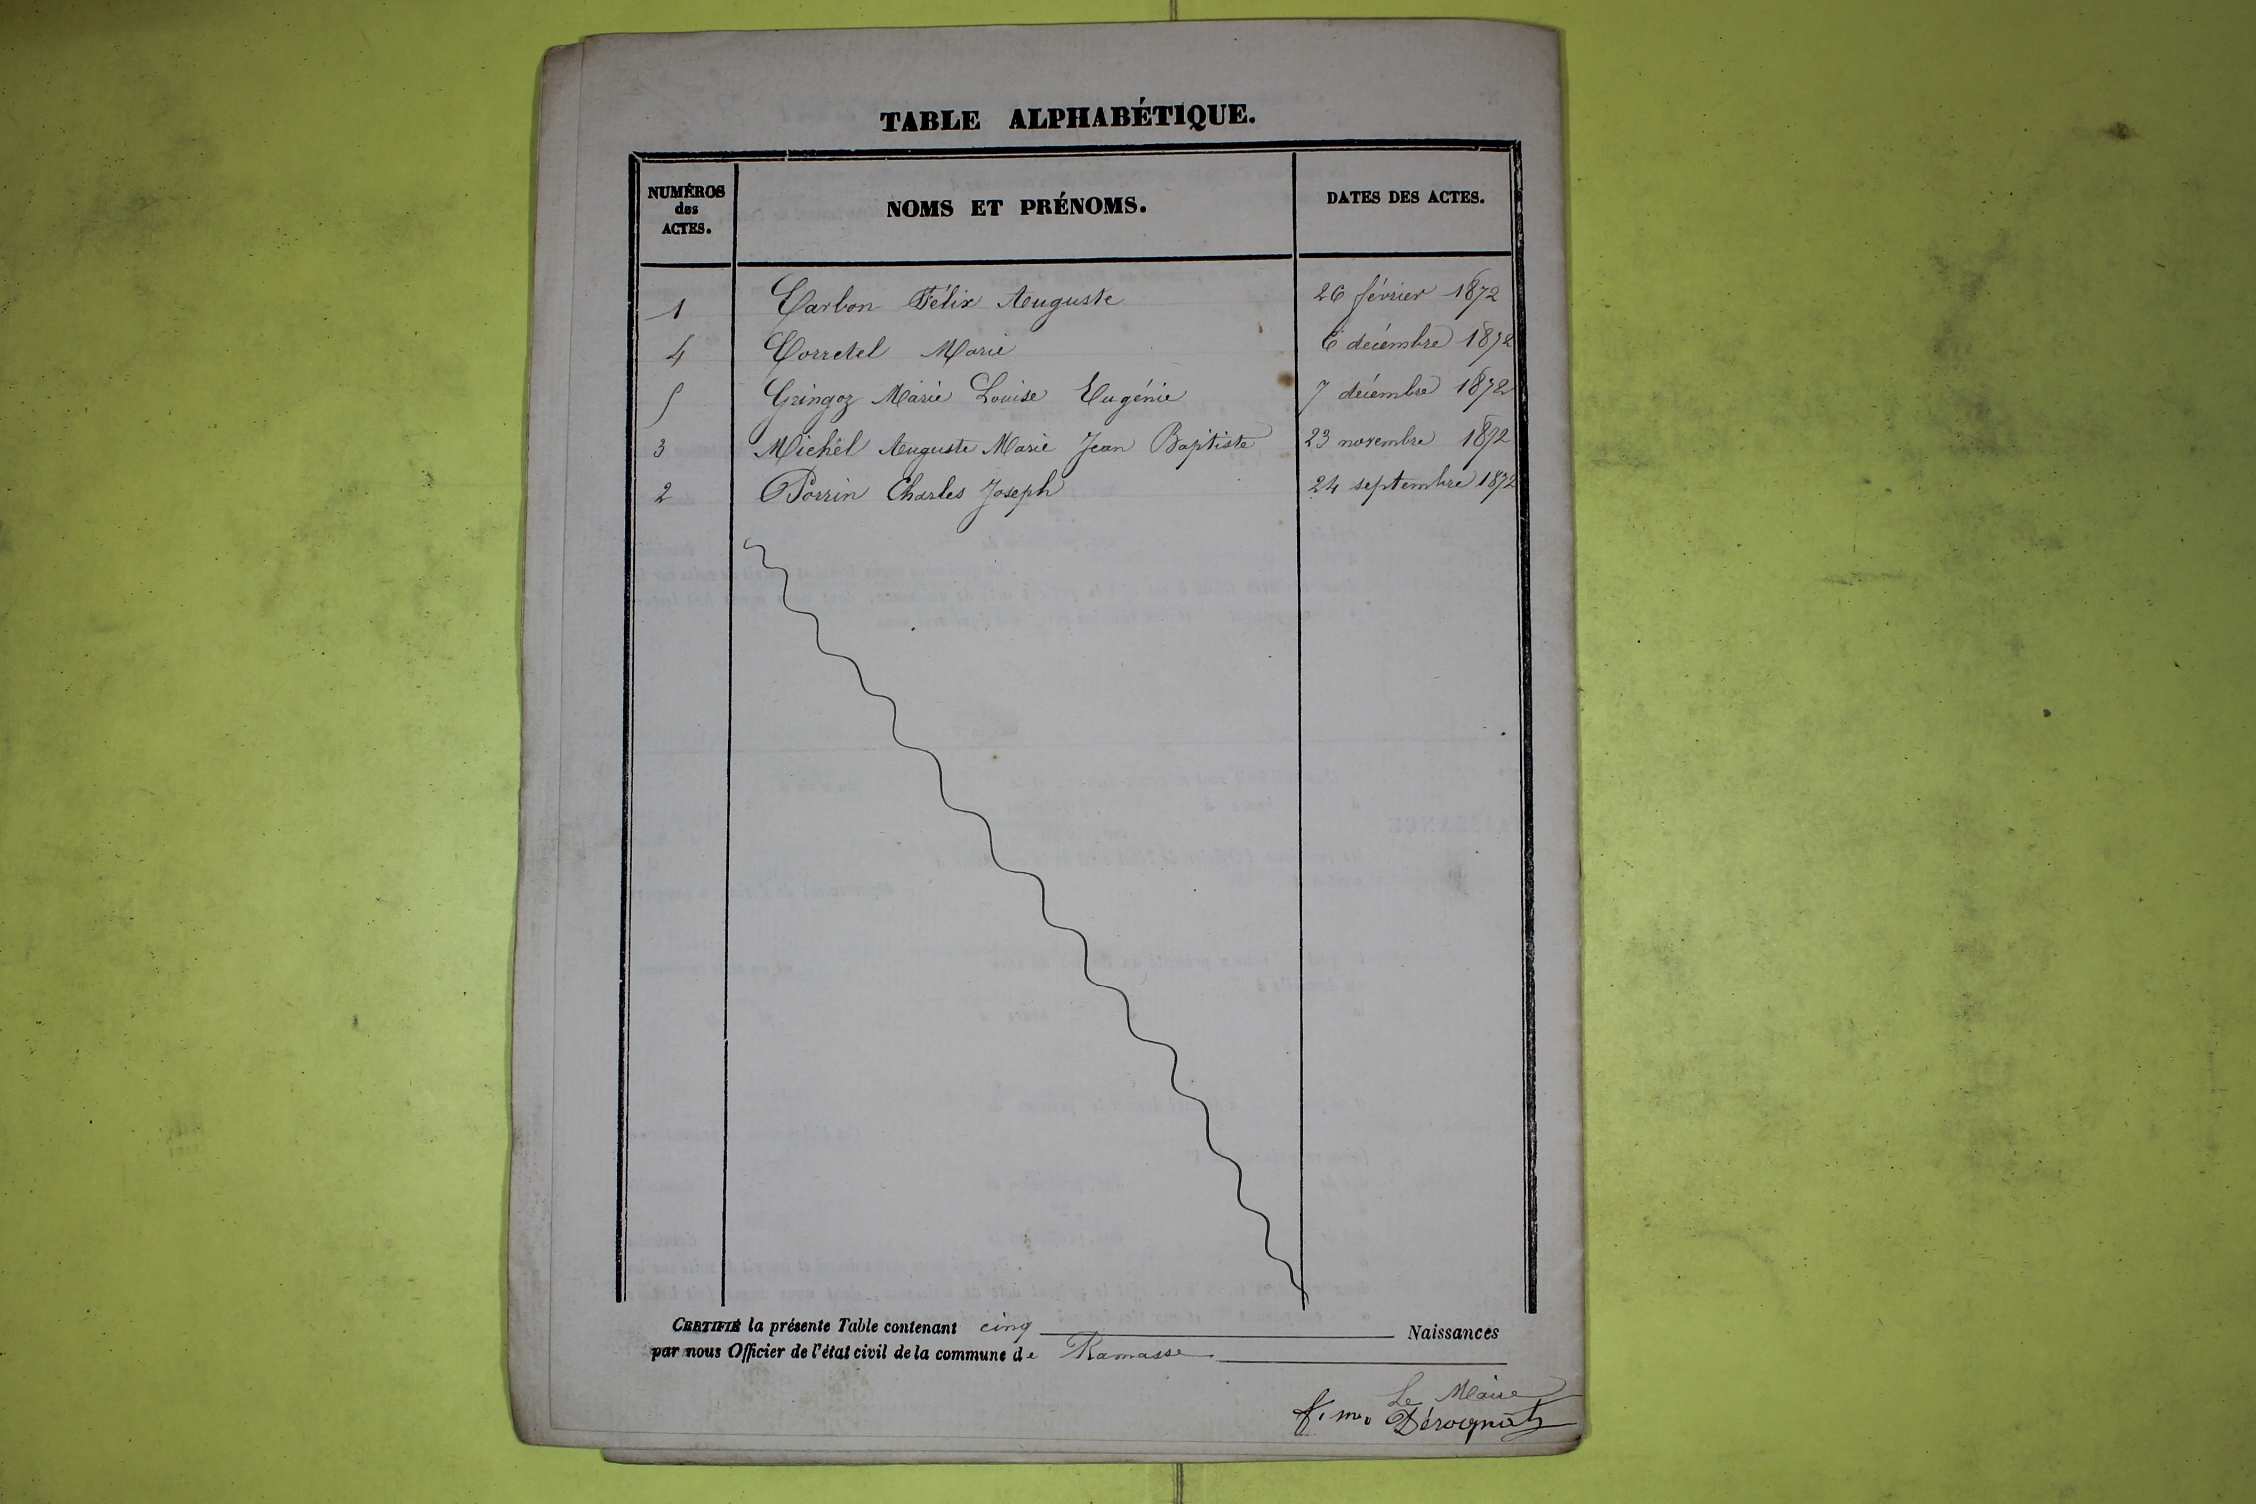 TABLE ALPHABÉTIQUE.
NUMÉROS
des
ACTES.
NOMS ET PRÉNOMS.
DATES DES ACTES.
1 Carbon Félix Auguste 26 février 1872
4 Corretel Marie 6 décembre 1872
5 Gringoz Marie Louise Eugénie 7 décembre 1872
3 Michel Auguste Marie Jean Baptiste 23 novembre 1872
2 Porrin Charles Joseph 24 septembre 1872
CERTIFIÉ la présente Table contenant cinq Naissances
par nous Officier de l'état civil de la commune de Ramasse
Le Maire